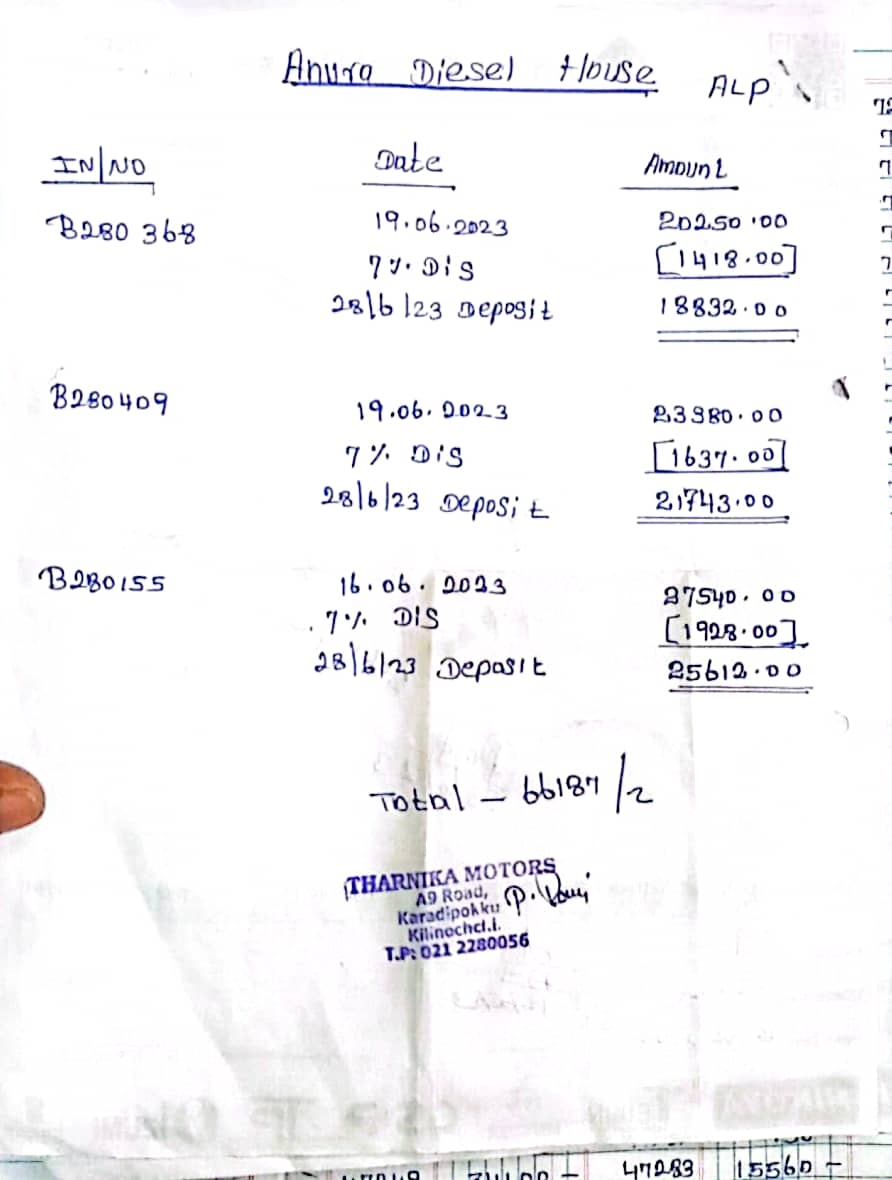 Anura Diesel House ALP
IN/NO Date Amount
B280 368 19.06.2023 20250.00
7% Dis [1418.00]
28/6/23 Deposit 18832.00
B280409 19.06.2023 23380.00
7% Dis [1637.00]
28/6/23 Deposit 21743.00
B280155 16.06.2023 27540.00
7% DIS [1928.00]
28/6/23 Deposit 25612.00
Total - 66187/2
THARNIKA MOTORS
A9 Road,
Karadipokku
Kilinochci.i.
T.P: 021 2280056
47283 15560 -